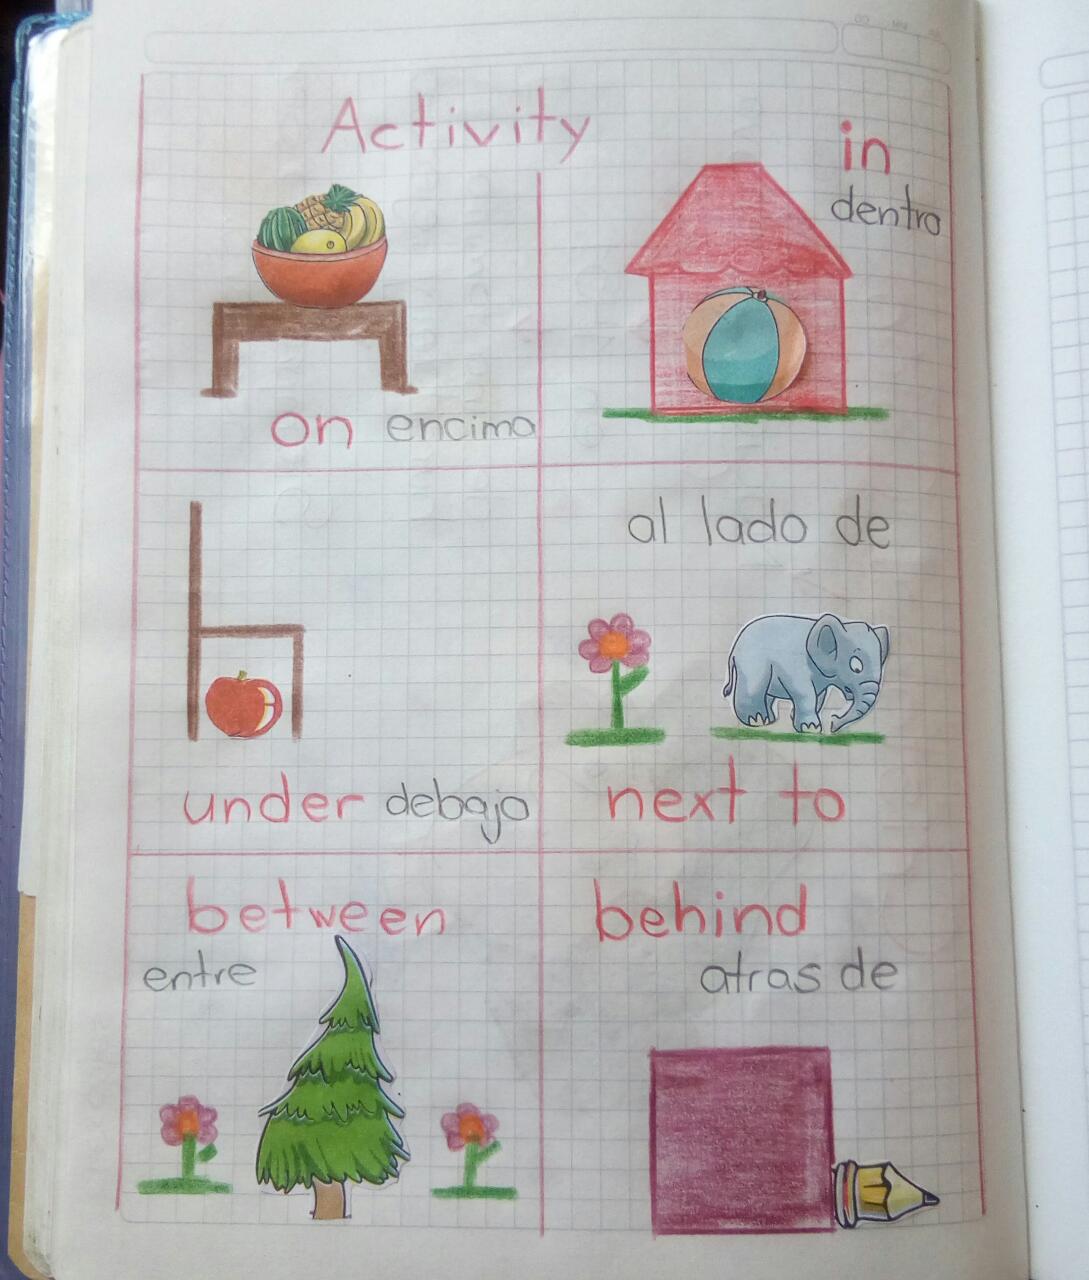 Activity
on encima
in
dentro
under debajo
al lado de
next to
between
entre
behind
atras de